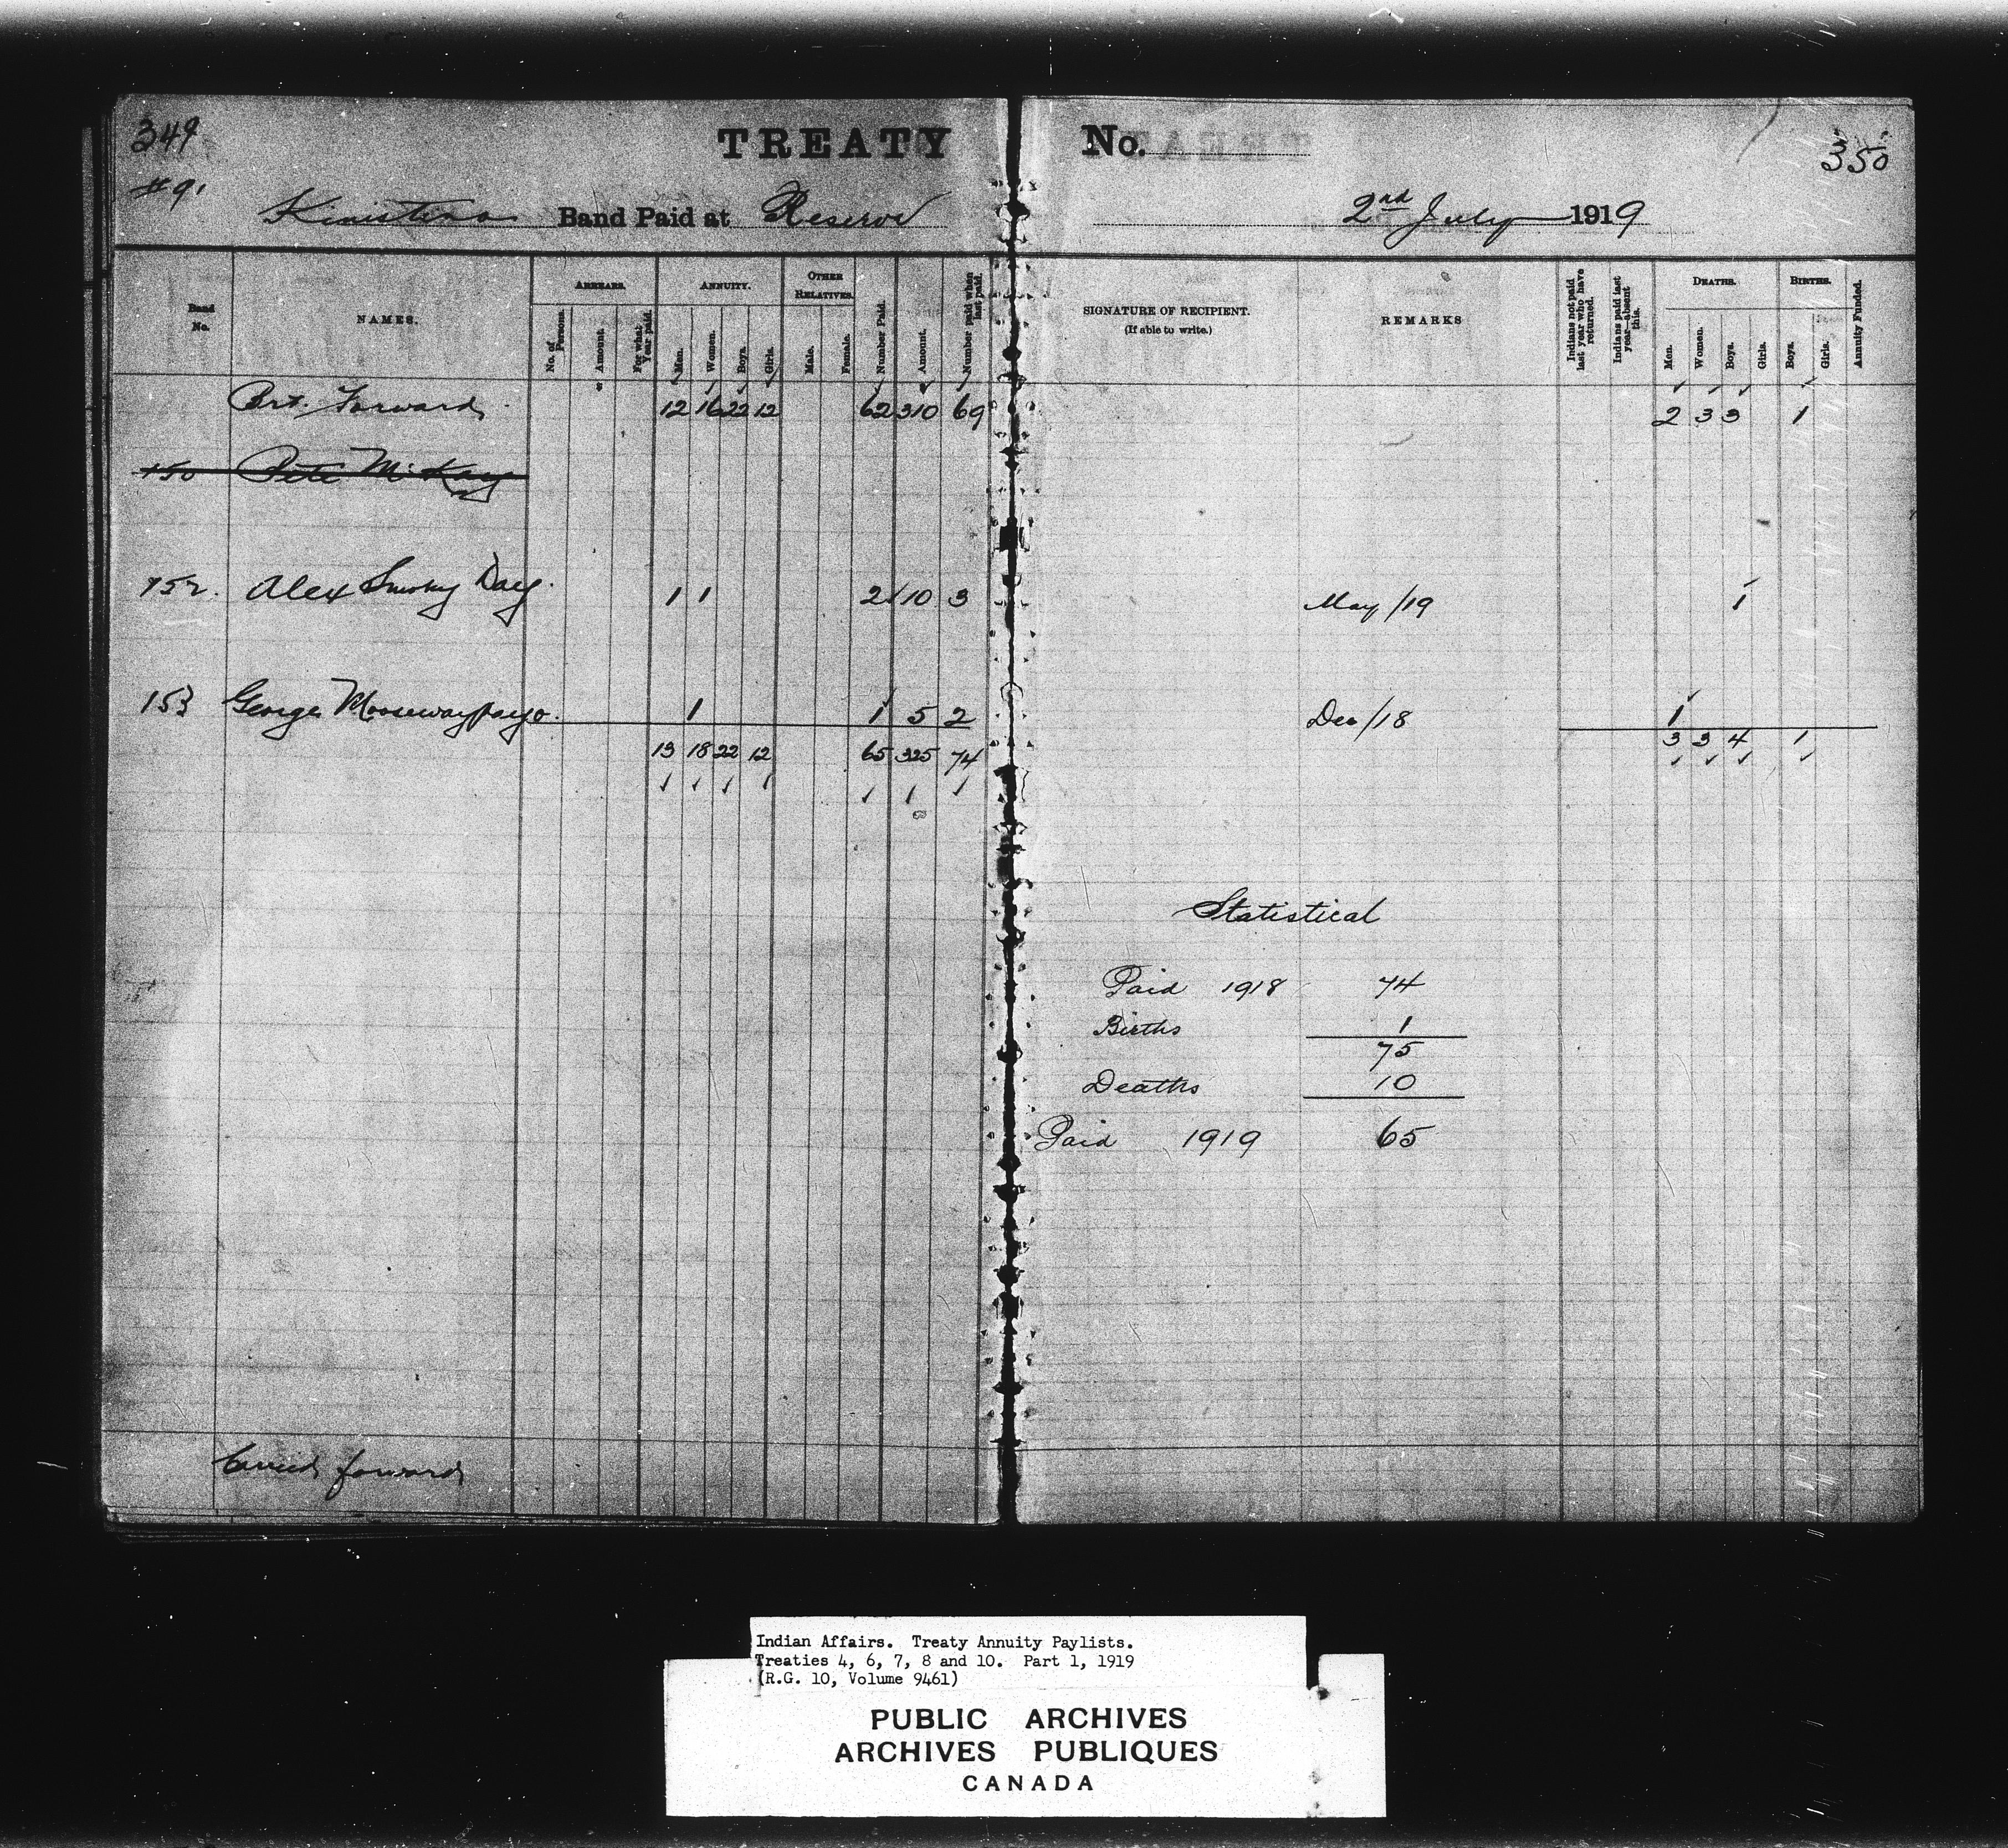 349 TREATY No. 350
#91
Kinistino Band Paid at Reserve 2nd July 1919
Band No. NAMES. ARREARS. ANNUITY. OTHER RELATIVES. Number Paid. Amount. Number paid when last paid. SIGNATURE OF RECIPIENT. (If able to write.) REMARKS Indians not paid last year who have returned. Indians paid last year—absent this. DEATHS. BIRTHS. Annuity Funded.
No. of Persons. Amount. For what Year paid. Men. Women. Boys. Girls. Male. Female. Men. Women. Boys. Girls. Boys. Girls.
Brt. Forward 12 16 22 12 62 310 69 2 3 3 1
150 Pete McKay
152. Alex Smoky Day. 1 1 2 10 3 May/19 1
153 George 1 1 5 2 Dec/18 1
13 18 22 12 65 325 74 3 3 4 1
Statistical
Paid 1918 74
Births 1
75
Deaths 10
Paid 1919 65
Carried forward
Indian Affairs. Treaty Annuity Paylists.
Treaties 4, 6, 7, 8 and 10. Part 1, 1919
(R.G. 10, Volume 9461)
PUBLIC ARCHIVES
ARCHIVES PUBLIQUES
CANADA